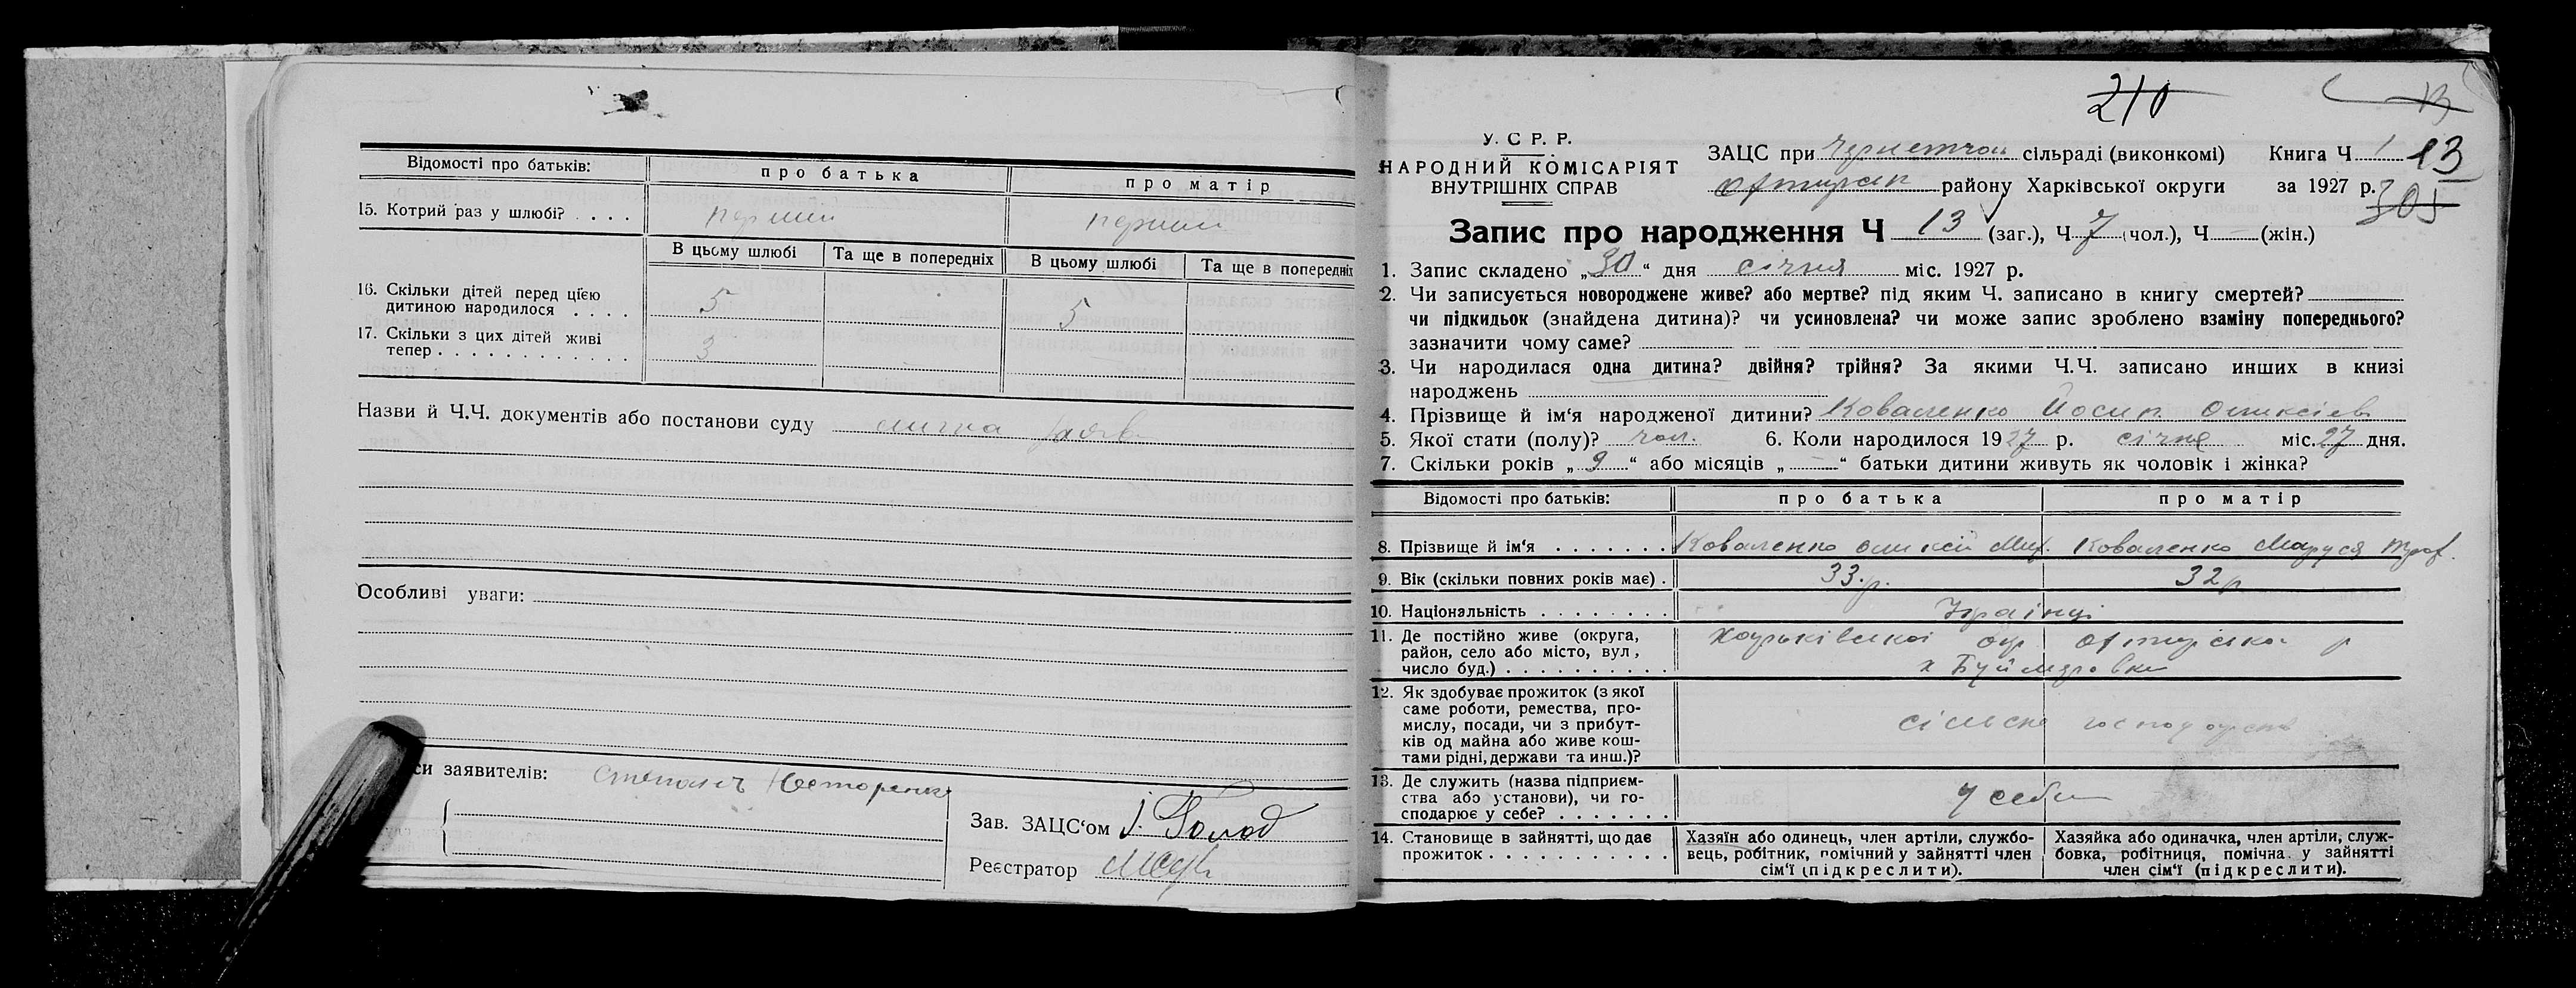 Відомості про батьків:
про батька
про матір
15. Котрий раз у шлюбі? . . . .
перший
перший
В цьому шлюбі
Та ще в попередніх
В цьому шлюбі
Та ще в попередніх
16. Скільки дітей перед цією
дитиною народилося . . . .
5
5
17. Скільки з цих дітей живі
тепер . . . . . . . . . . . .
3
Назви й Ч.Ч. документів або постанови суду
Особливі уваги:
си заявителів:
Степанъ Несторенко
Зав. ЗАЦС'ом
Реєстратор
210
13
У. С Р. Р.
НАРОДНИЙ КОМІСАРІЯТ
ВНУТРІШНІХ СПРАВ
ЗАЦС при сільраді (виконкомі)
Книга Ч 1
13
району Харківської округи
за 1927 р.
305
Запис про народження Ч 13 (заг.), Ч 7 (чол.), Ч — (жін.)
1. Запис складено „30“ дня січня міс. 1927 р.
2. Чи записується новороджене живе? або мертве? під яким Ч. записано в книгу смертей?
чи підкидьок (знайдена дитина)? чи усиновлена? чи може запис зроблено взаміну попереднього?
зазначити чому саме?
3. Чи народилася одна дитина? двійня? трійня? За якими Ч.Ч. записано инших в книзі
народжень
4. Прізвище й ім'я народженої дитини? Коваленко Йосип Олексієв
5. Якої стати (полу)? чол. 6. Коли народилося 1927 р. січня міс. 27 дня.
7. Скільки років „9“ або місяців „—“ батьки дитини живуть як чоловік і жінка?
Відомості про батьків:
про батька
про матір
8. Прізвище й ім'я . . . . . . .
Коваленко Олексій Мих.
Коваленко Маруся Троф.
9. Вік (скільки повних років має) .
33 р.
32 р
10. Національність . . . . . . . .
Українці
11. Де постійно живе (округа,
район, село або місто, вул,
число буд.) . . . . . . . . . .
Харьківської окр р
х Буймеровка
12. Як здобуває прожиток (з якої
саме роботи, ремества, про-
мислу, посади, чи з прибут-
ків од майна або живе кош-
тами рідні, держави та инш.)?
сільске господарство
13. Де служить (назва підприєм-
ства або установи), чи го-
сподарює у себе? . . . . . . .
у себе
14. Становище в зайнятті, що дає
прожиток . . . . . . . . . . .
Хазяїн або одинець, член артіли, службо-
вець, робітник, помічний у зайнятті член
сім'ї (підкреслити).
Хазяйка або одиначка, член артіли, служ-
бовка, робітниця, помічна у зайнятті
член сім'ї (підкреслити).